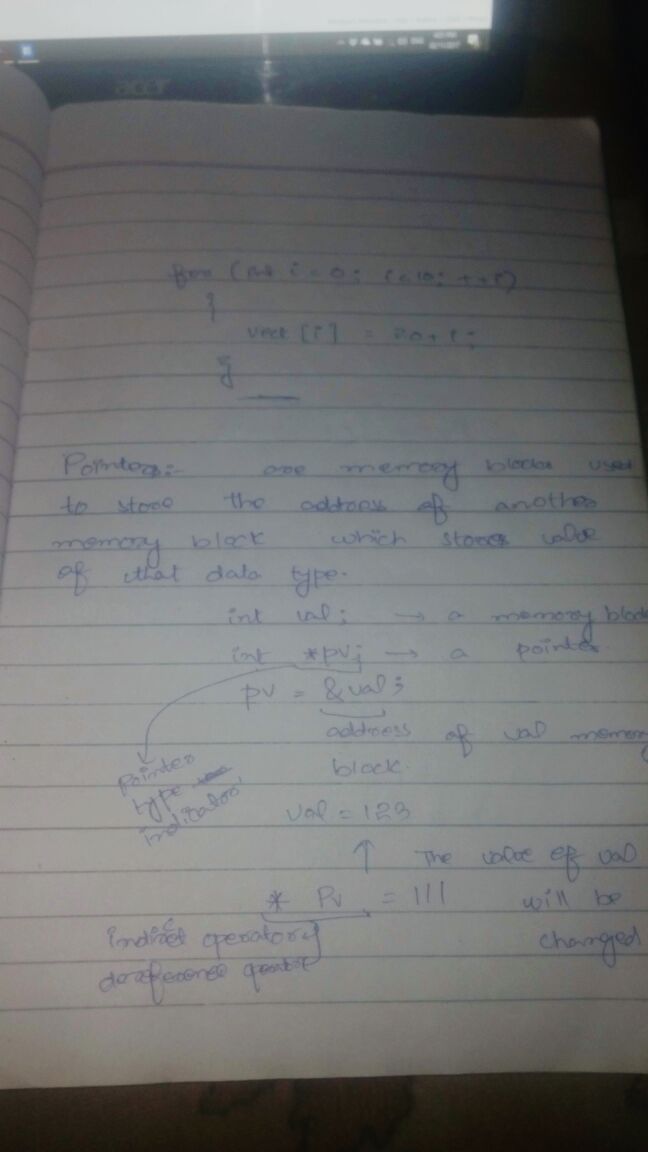 acer
for (int i = 0; i<10; ++i)
{
vect [i] = 20+i;
}
Pointers:- are memory blocks used
to store the address of another
memory block which stores value
of that data type.
int val; → a memory block
int *pv; → a pointer.
pv = &val;
address of val memory
block.
Pointer
type
indicator
val = 123
↑ The value of val
* Pv = 111 will be
indirect operator changed
dereference